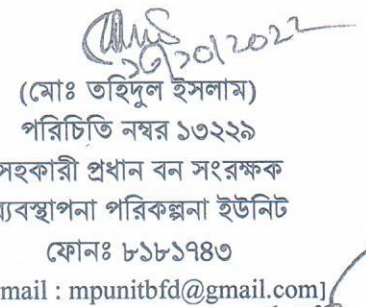 (মোঃ তহিদুল ইসলাম)
পরিচিতি নম্বর ১৩২২৯
সহকারী প্রধান বন সংরক্ষক
ব্যবস্থাপনা পরিকল্পনা ইউনিট
ফোনঃ ৮১৮১৭৪৩
mail : mpunitbfd@gmail.com]